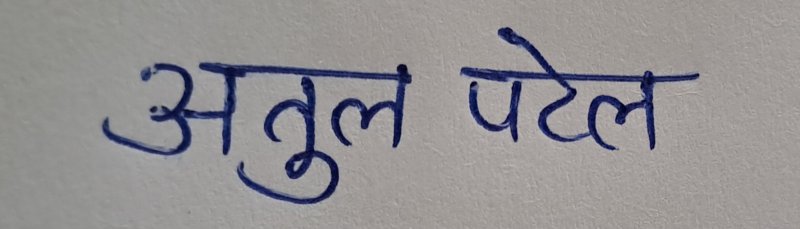 अतुल पटेल